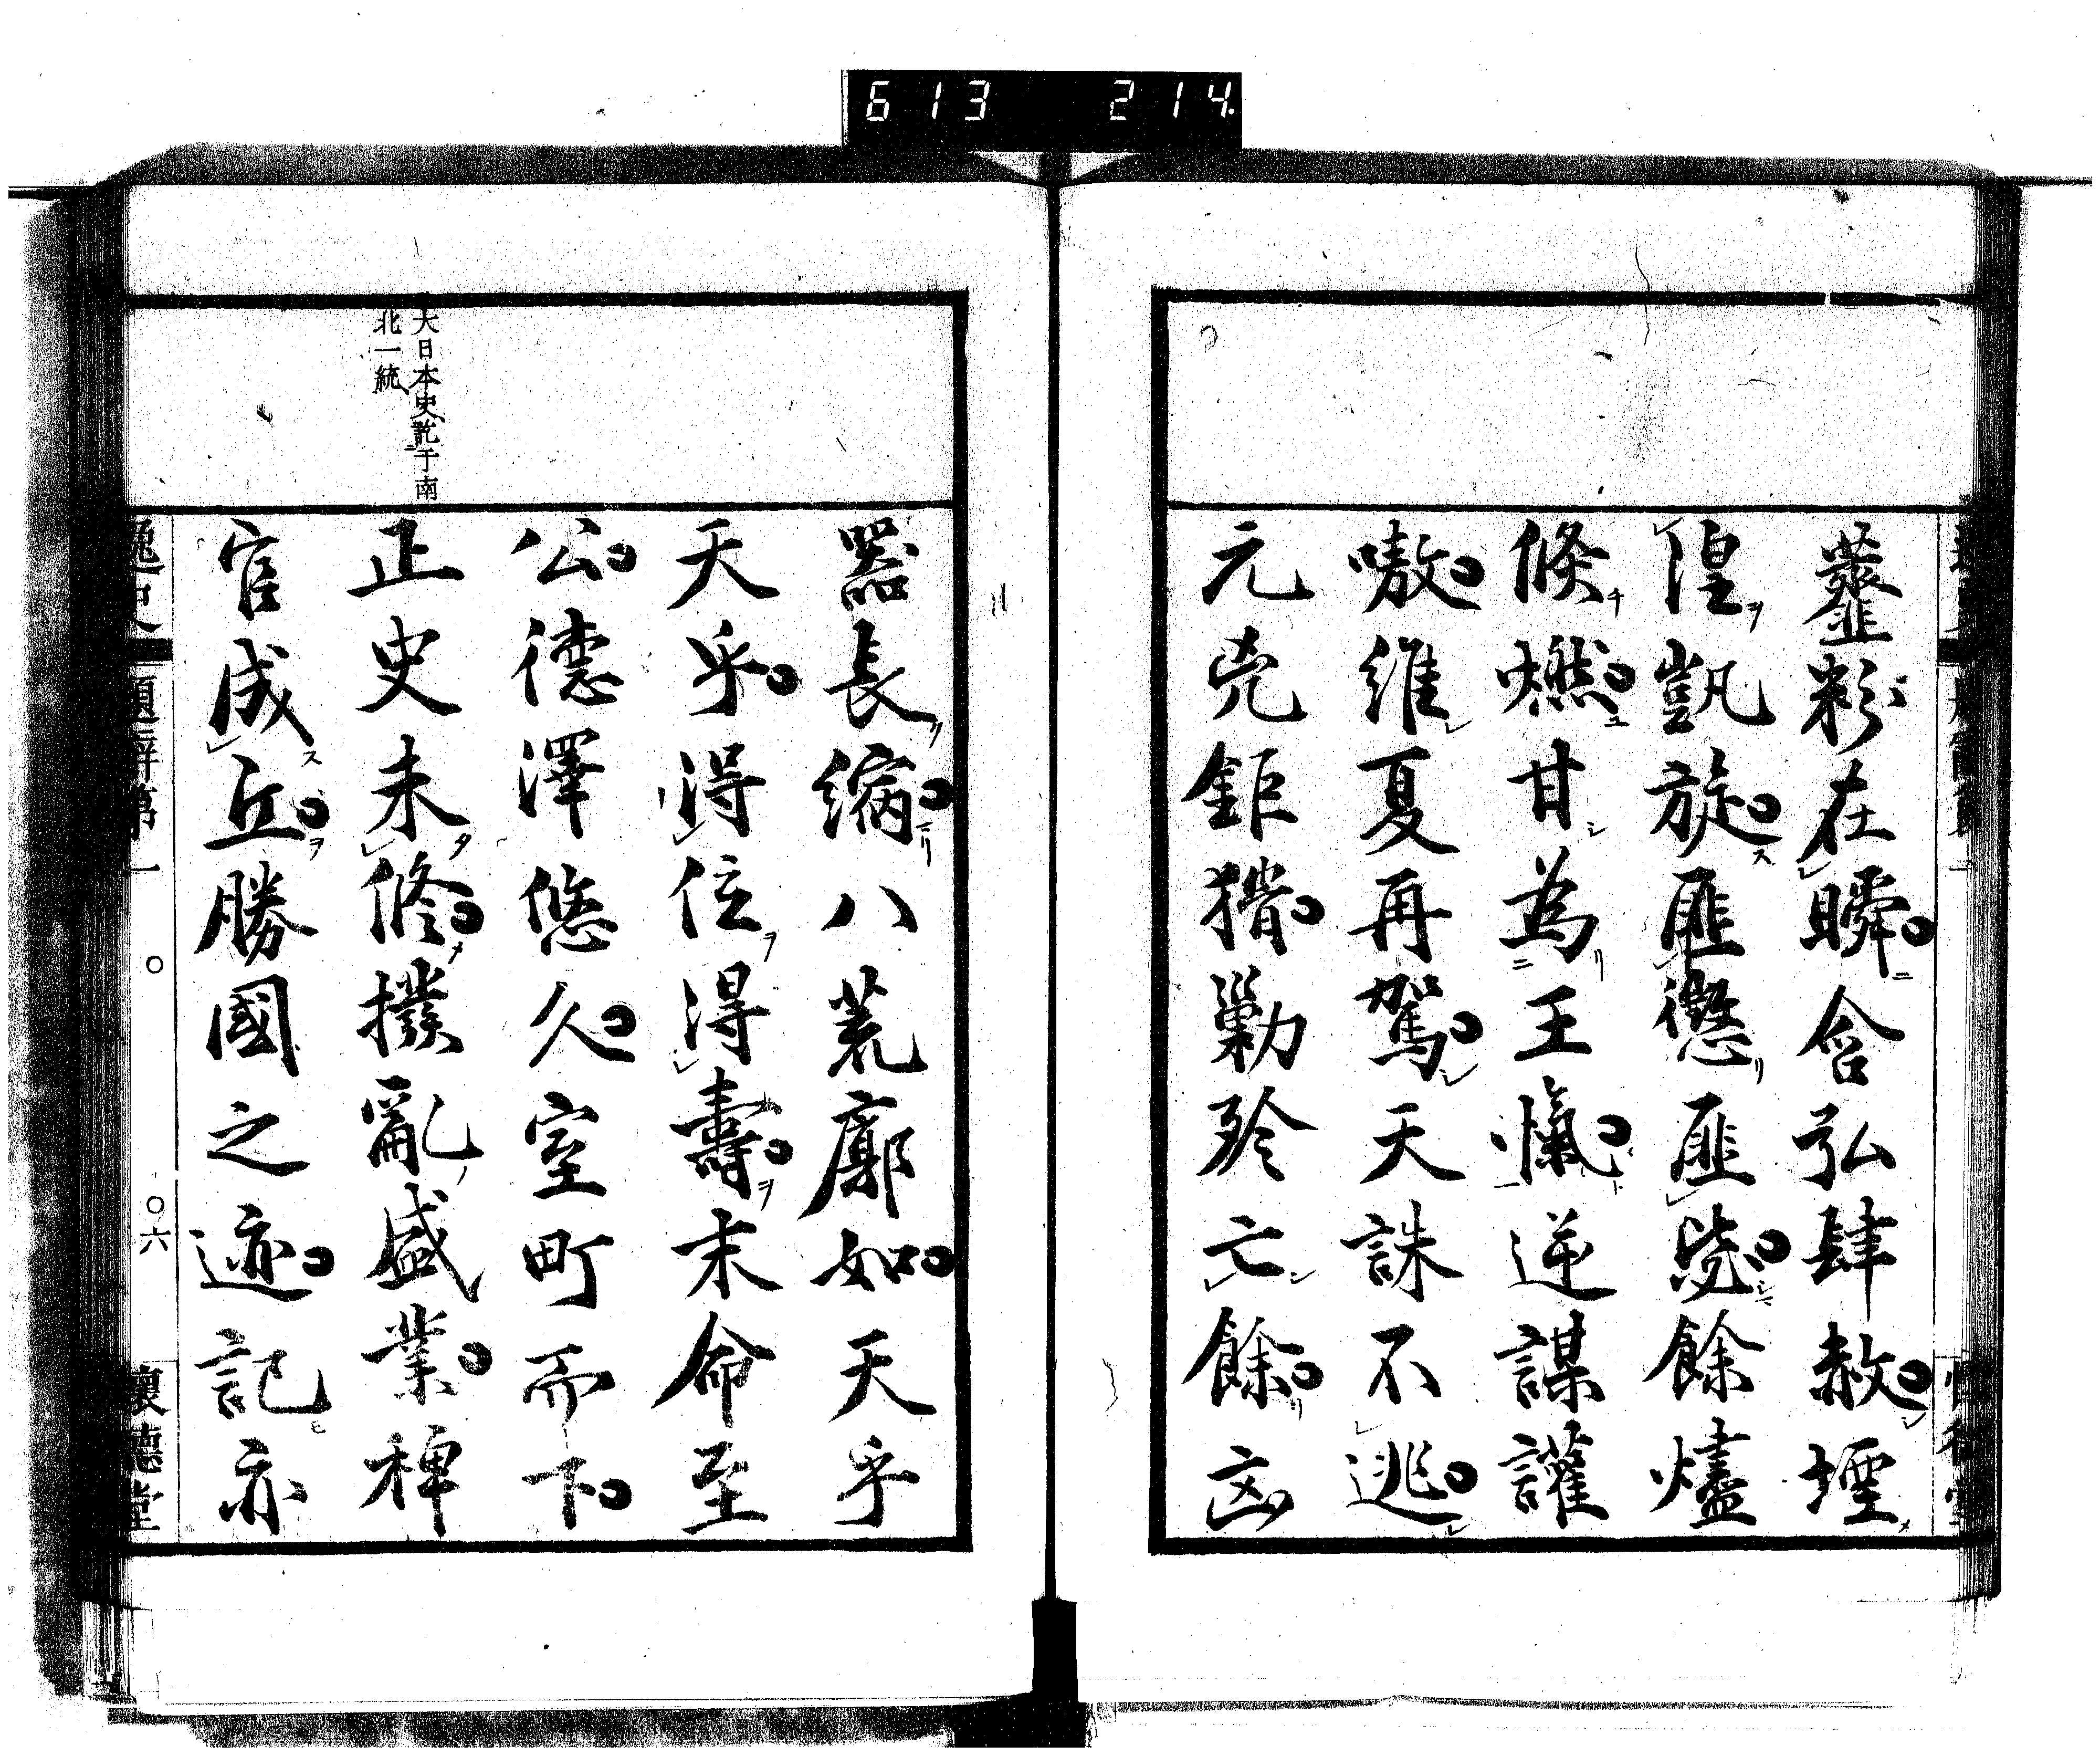 613 214
虀粉在瞬含弘肆赦堙
隍凱旋匪懲匪毖餘燼
倏燃甘為王愾逆謀讙
嗷維夏再駕天誅不逃
元兇鉅猾勦殄亡餘凶
器長縮八荒廓如天乎
天乎得位得壽末命至
公德澤悠久室町而下
大日本史訖于南
北一統
正史未修撥亂盛業稗
官成丘勝國之迹記亦
逸史
題辭第一
〇
〇六
懷德堂